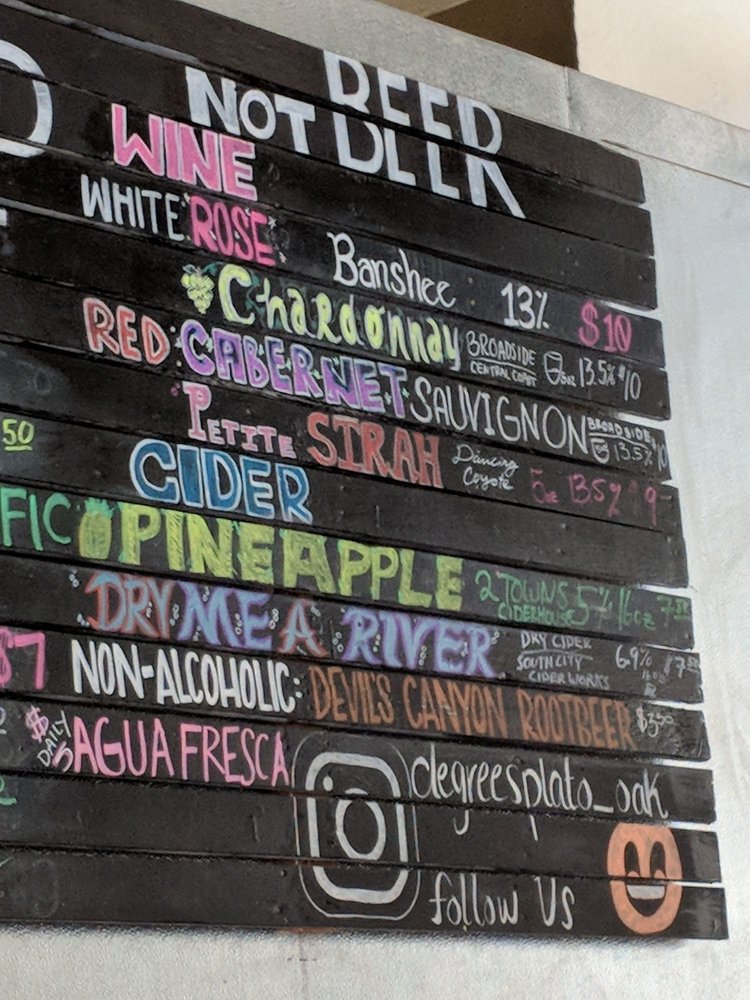 NOT BEER
WINE
WHITE ROSE Banshee 13% $10
Chardonnay BROADSIDE CENTRAL COAST 5oz 13.5% $10
RED: CABERNET SAUVIGNON BROADSIDE 13.5% $10
PETITE SIRAH Dancing Coyote 5oz 13.5% $9
50
CIDER
FIC PINEAPPLE 2 TOWNS CIDERHOUSE 5% 16oz
DRY ME A RIVER DRY CIDER SOUTH CITY CIDER WORKS 6.9%
$7 NON-ALCOHOLIC: DEVIL'S CANYON ROOTBEER $3.50
DAILY $5 AGUA FRESCA
degreesplato_oak
follow Us